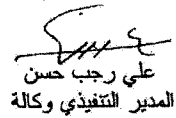 علي رجب حسن
المدير التنفيذي وكالة